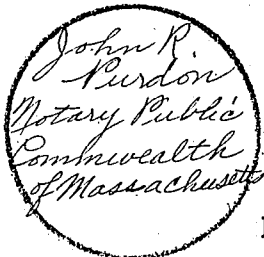 John R.
Purdon
Notary Public
Commwealth
of Massachusetts